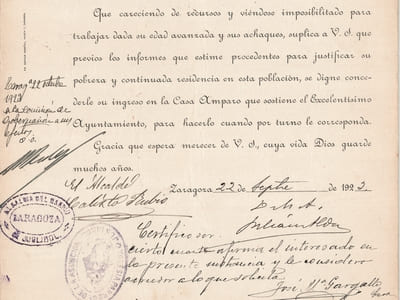 Que careciendo de recursos y viéndose imposibilitado para
trabajar dada su edad avanzada y sus achaques, suplica a V. S. que
previos los informes que estime procedentes para justificar su
pobreza y continuada residencia en esta población, se digne conce-
derle su ingreso en la Casa Amparo que sostiene el Excelentísimo
Ayuntamiento, para hacerlo cuando por turno le corresponda.
Gracia que espera merecer de V. S., cuya vida Dios guarde
muchos años.
a la
Gobernación a sus
efectos
El Alcalde
Zaragoza 22 Septbre de 192
Calixto Rubio
ALCALDIA DEL BARRIO
ZARAGOZA
DE JUSLIBOL
Certifico ser
cierto cuanto afirma el interesado en
la presente instancia y le considero
acreedor a lo que solicita
José Mª Gargallo